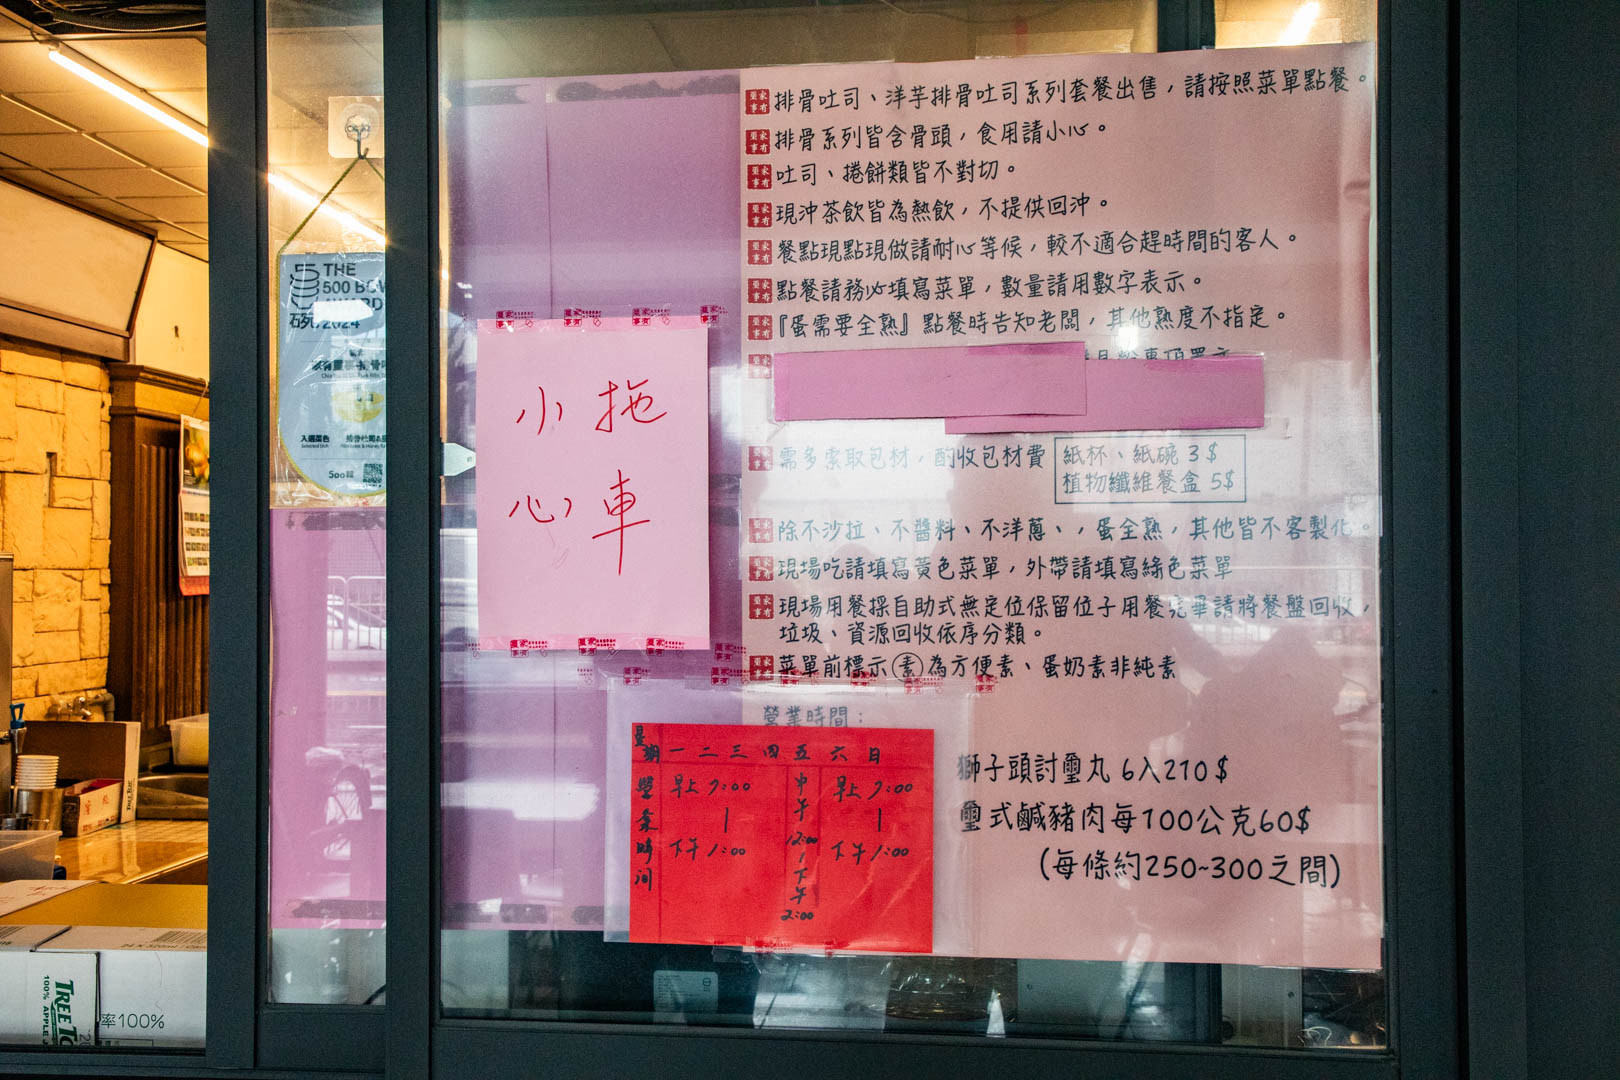 THE
500 BOW
AWARD
2024
入選菜色
Selected Dish
500
小拖
心車
排骨吐司、洋芋排骨吐司系列套餐出售，請按照菜單點餐。
排骨系列皆含骨頭，食用請小心。
吐司、捲餅類皆不對切。
現沖茶飲皆為熱飲，不提供回沖。
餐點現點現做請耐心等候，較不適合趕時間的客人。
點餐請務必填寫菜單，數量請用數字表示。
『蛋需要全熟』點餐時告知老闆，其他熟度不指定。
需多索取包材，酌收包材費
紙杯、紙碗 3$
植物纖維餐盒 5$
除不沙拉、不醬料、不洋蔥、，蛋全熟，其他皆不客製化。
現場吃請填寫黃色菜單，外帶請填寫綠色菜單
現場用餐採自助式無定位保留位子用餐完畢請將餐盤回收，
垃圾、資源回收依序分類。
菜單前標示素為方便素、蛋奶素非純素
營業時間：
星期 一 二 三 四 五 六 日
營業時间
早上7:00
|
下午1:00
中午12:00
|
下午2:00
早上7:00
|
下午1:00
獅子頭討璽丸 6入210$
璽式鹹豬肉每100公克60$
(每條約250~300之間)
TREE TO
100% APPLE
率100%